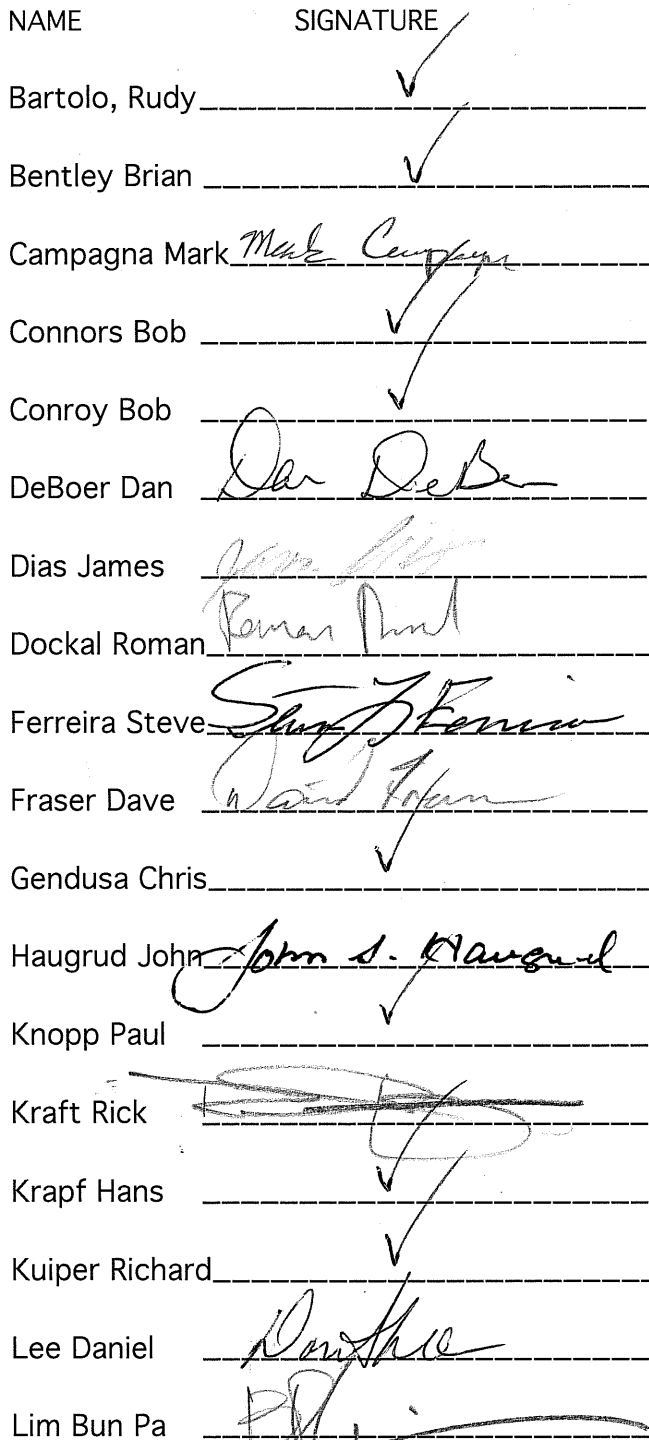 NAME SIGNATURE
Bartolo, Rudy
Bentley Brian
Campagna Mark Mark Campagna
Connors Bob
Conroy Bob
DeBoer Dan Dan DeBoer
Dias James
Dockal Roman Roman
Ferreira Steve Steve Ferreira
Fraser Dave David Fraser
Gendusa Chris
Haugrud John John S. Haugrud
Knopp Paul
Kraft Rick
Krapf Hans
Kuiper Richard
Lee Daniel
Lim Bun Pa